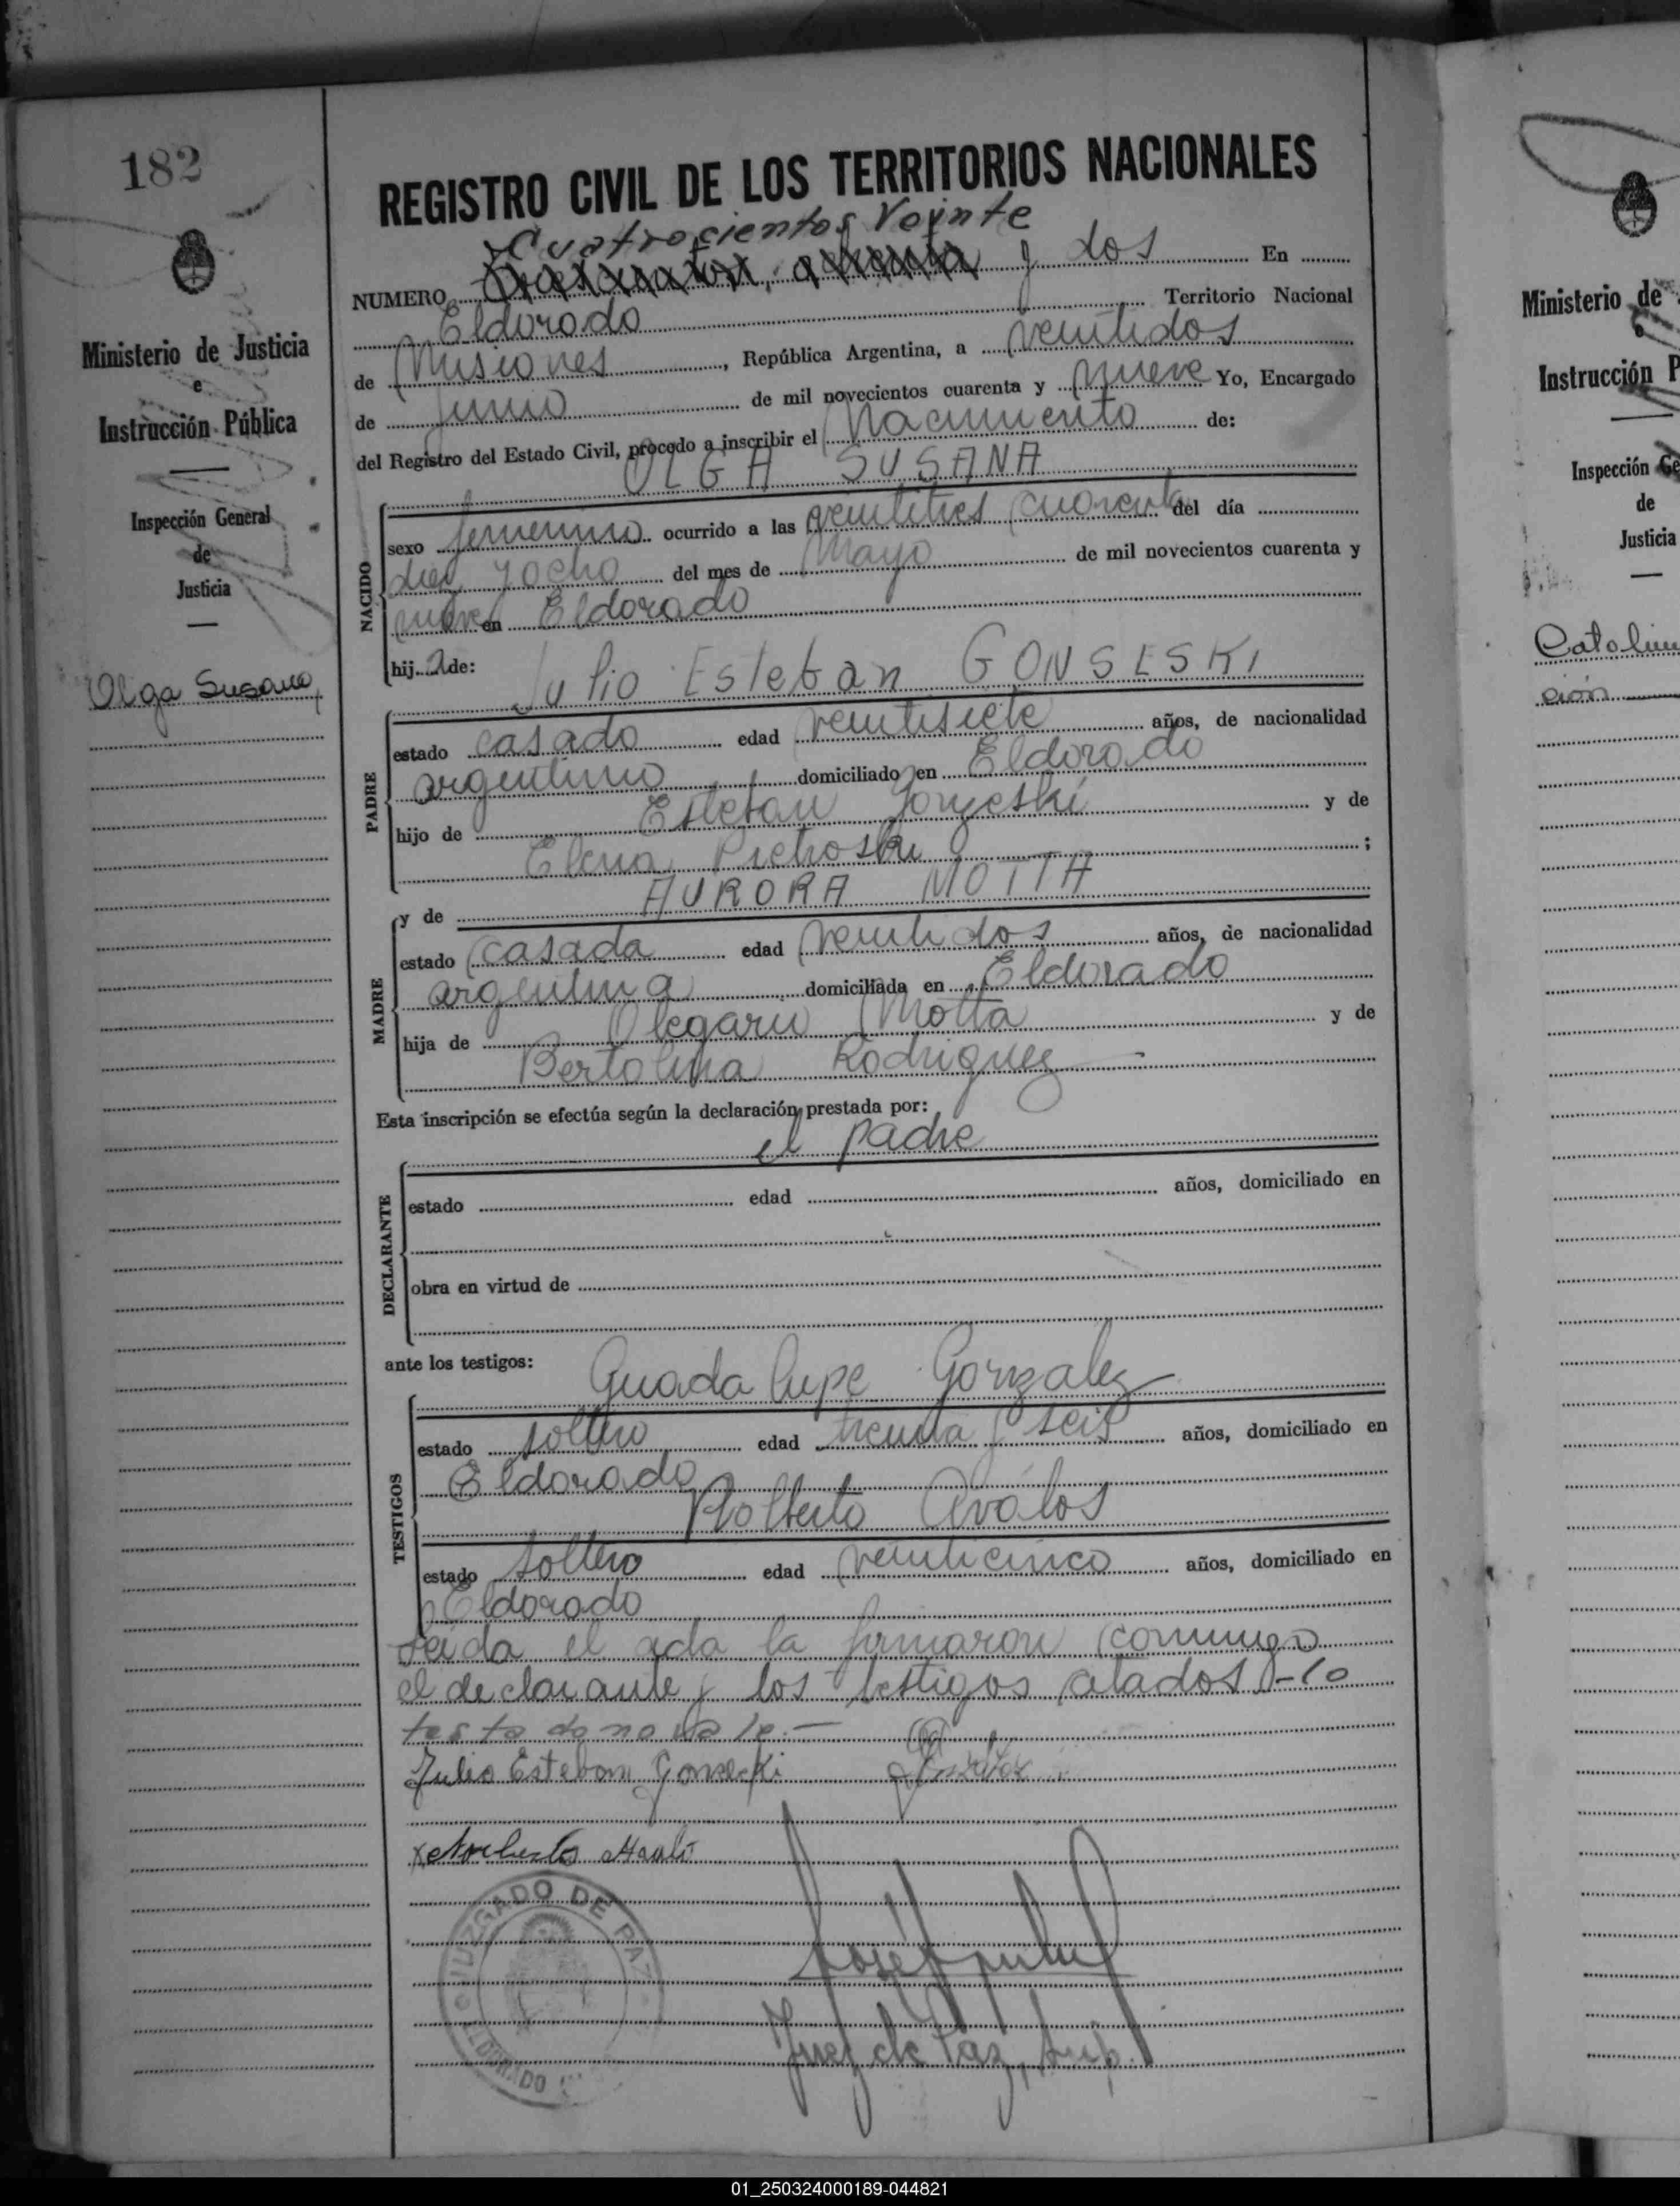 182
REGISTRO CIVIL DE LOS TERRITORIOS NACIONALES
Cuatrocientos Veinte
NUMERO y dos En
Eldorado Territorio Nacional
de Misiones, República Argentina, a veintidos
de Junio de mil novecientos cuarenta y nueve Yo, Encargado
del Registro del Estado Civil, procedo a inscribir el Nacimiento de:
OLGA SUSANA
Ministerio de Justicia
e
Instrucción Pública
Inspección General
de
Justicia
Olga Susana
NACIDO
sexo femenino ocurrido a las veintitres cuarenta del día
diez y ocho del mes de Mayo de mil novecientos cuarenta y
nueve en Eldorado
hij a de: Julio Esteban GONSESKI
PADRE
estado casado edad veintisiete años, de nacionalidad
argentino domiciliado en Eldorado
hijo de Esteban Gonzeski y de
Elena Pietroski ;
y de AURORA MOTTA
MADRE
estado casada edad veintidos años, de nacionalidad
argentina domiciliada en Eldorado
hija de Olegario Motta y de
Bertolina Rodriguez
Esta inscripción se efectúa según la declaración prestada por:
el padre
DECLARANTE
estado edad años, domiciliado en
obra en virtud de
ante los testigos: Guadalupe Gonzalez
TESTIGOS
estado soltero edad treinta y seis años, domiciliado en
Eldorado
Avalos
estado soltero edad veinticinco años, domiciliado en
Eldorado
Leida el acta la firmaron conmigo
el declarante y los testigos citados -lo
testado no vale.-
Julio Esteban Gonseski Gonzalez
JUZGADO DE PAZ
ELDORADO
Juez de Paz, Sup.
Ministerio de
e
Instrucción P
Inspección Ge
de
Justicia
Catolin
ción
01_250324000189-044821